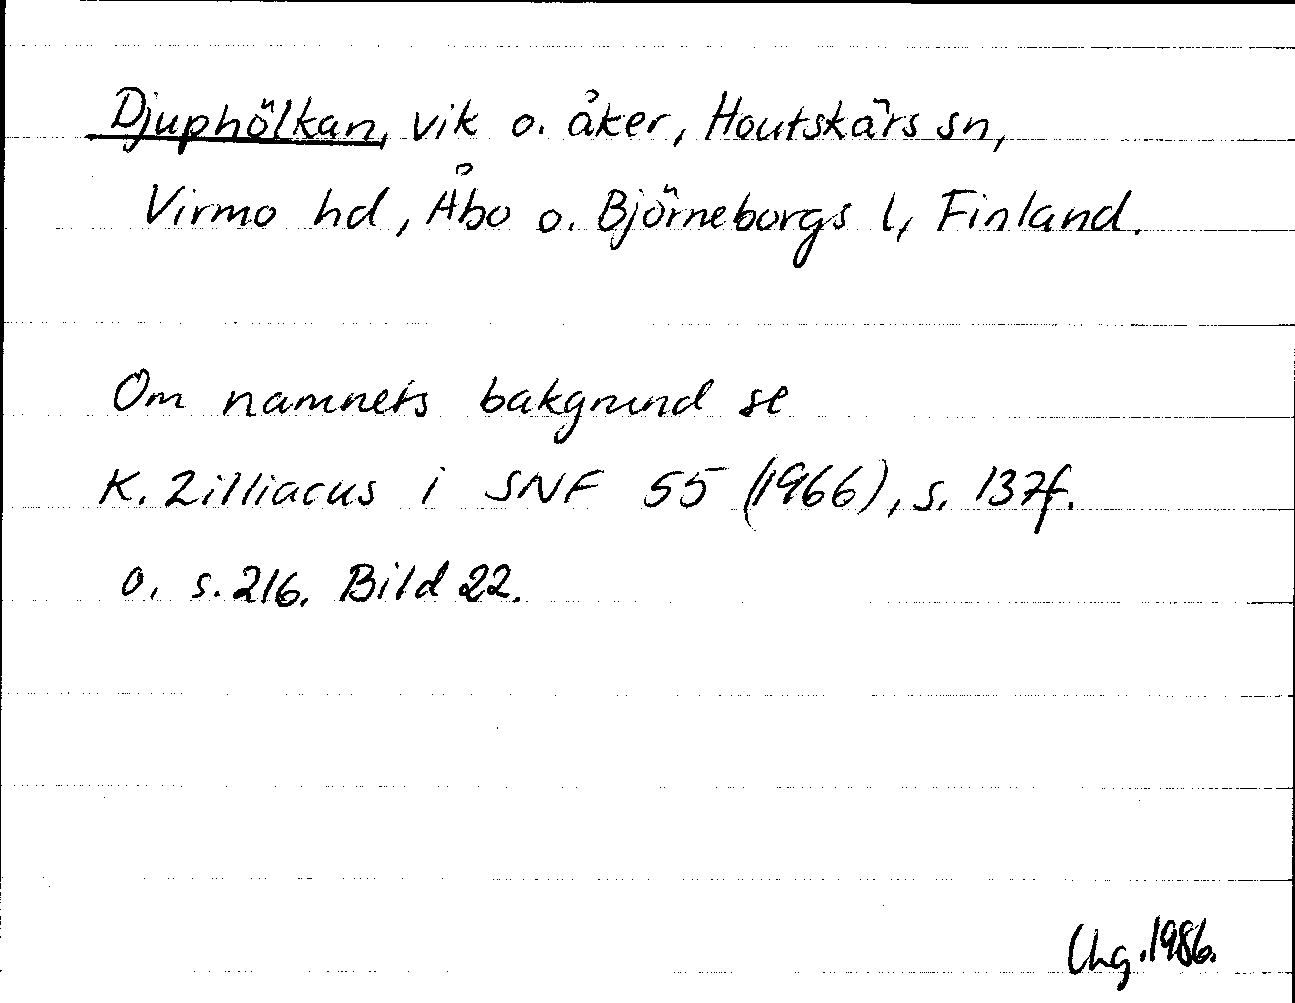 Djuphölkan, vik o. åker, Houtskärs sn,
Virmo hd, Åbo o. Björneborgs l, Finland.
Om namnets bakgrund se
K. Zilliacus i SNF 55 (1966), s. 137f.
o. s. 216. Bild 22.
1986.